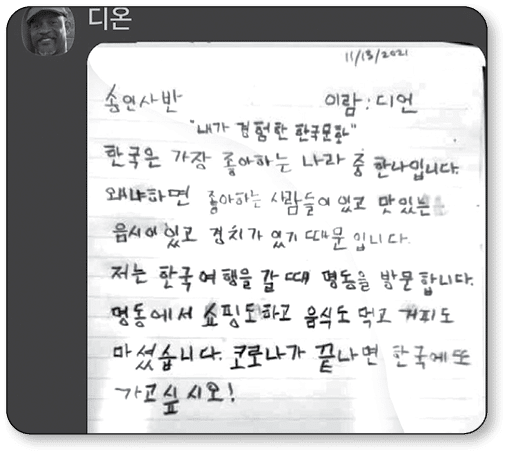 디온
11/13/2021
송연사반 이람: 디언
"내가 경험한 한국문화"
한국은 가장 좋아하는 나라 중 한나입니다.
왜냐하면 좋아하는 사람들이 있고 맛있는
음시이 있고 경치가 있기 때문 입니다.
저는 한국여행을 갈 때 명동을 방문합니다.
명동에서 쇼핑도하고 음식도 먹고 커피도
마셨습니다. 코로나가 끝나면 한국에 또
가고싶 시오!